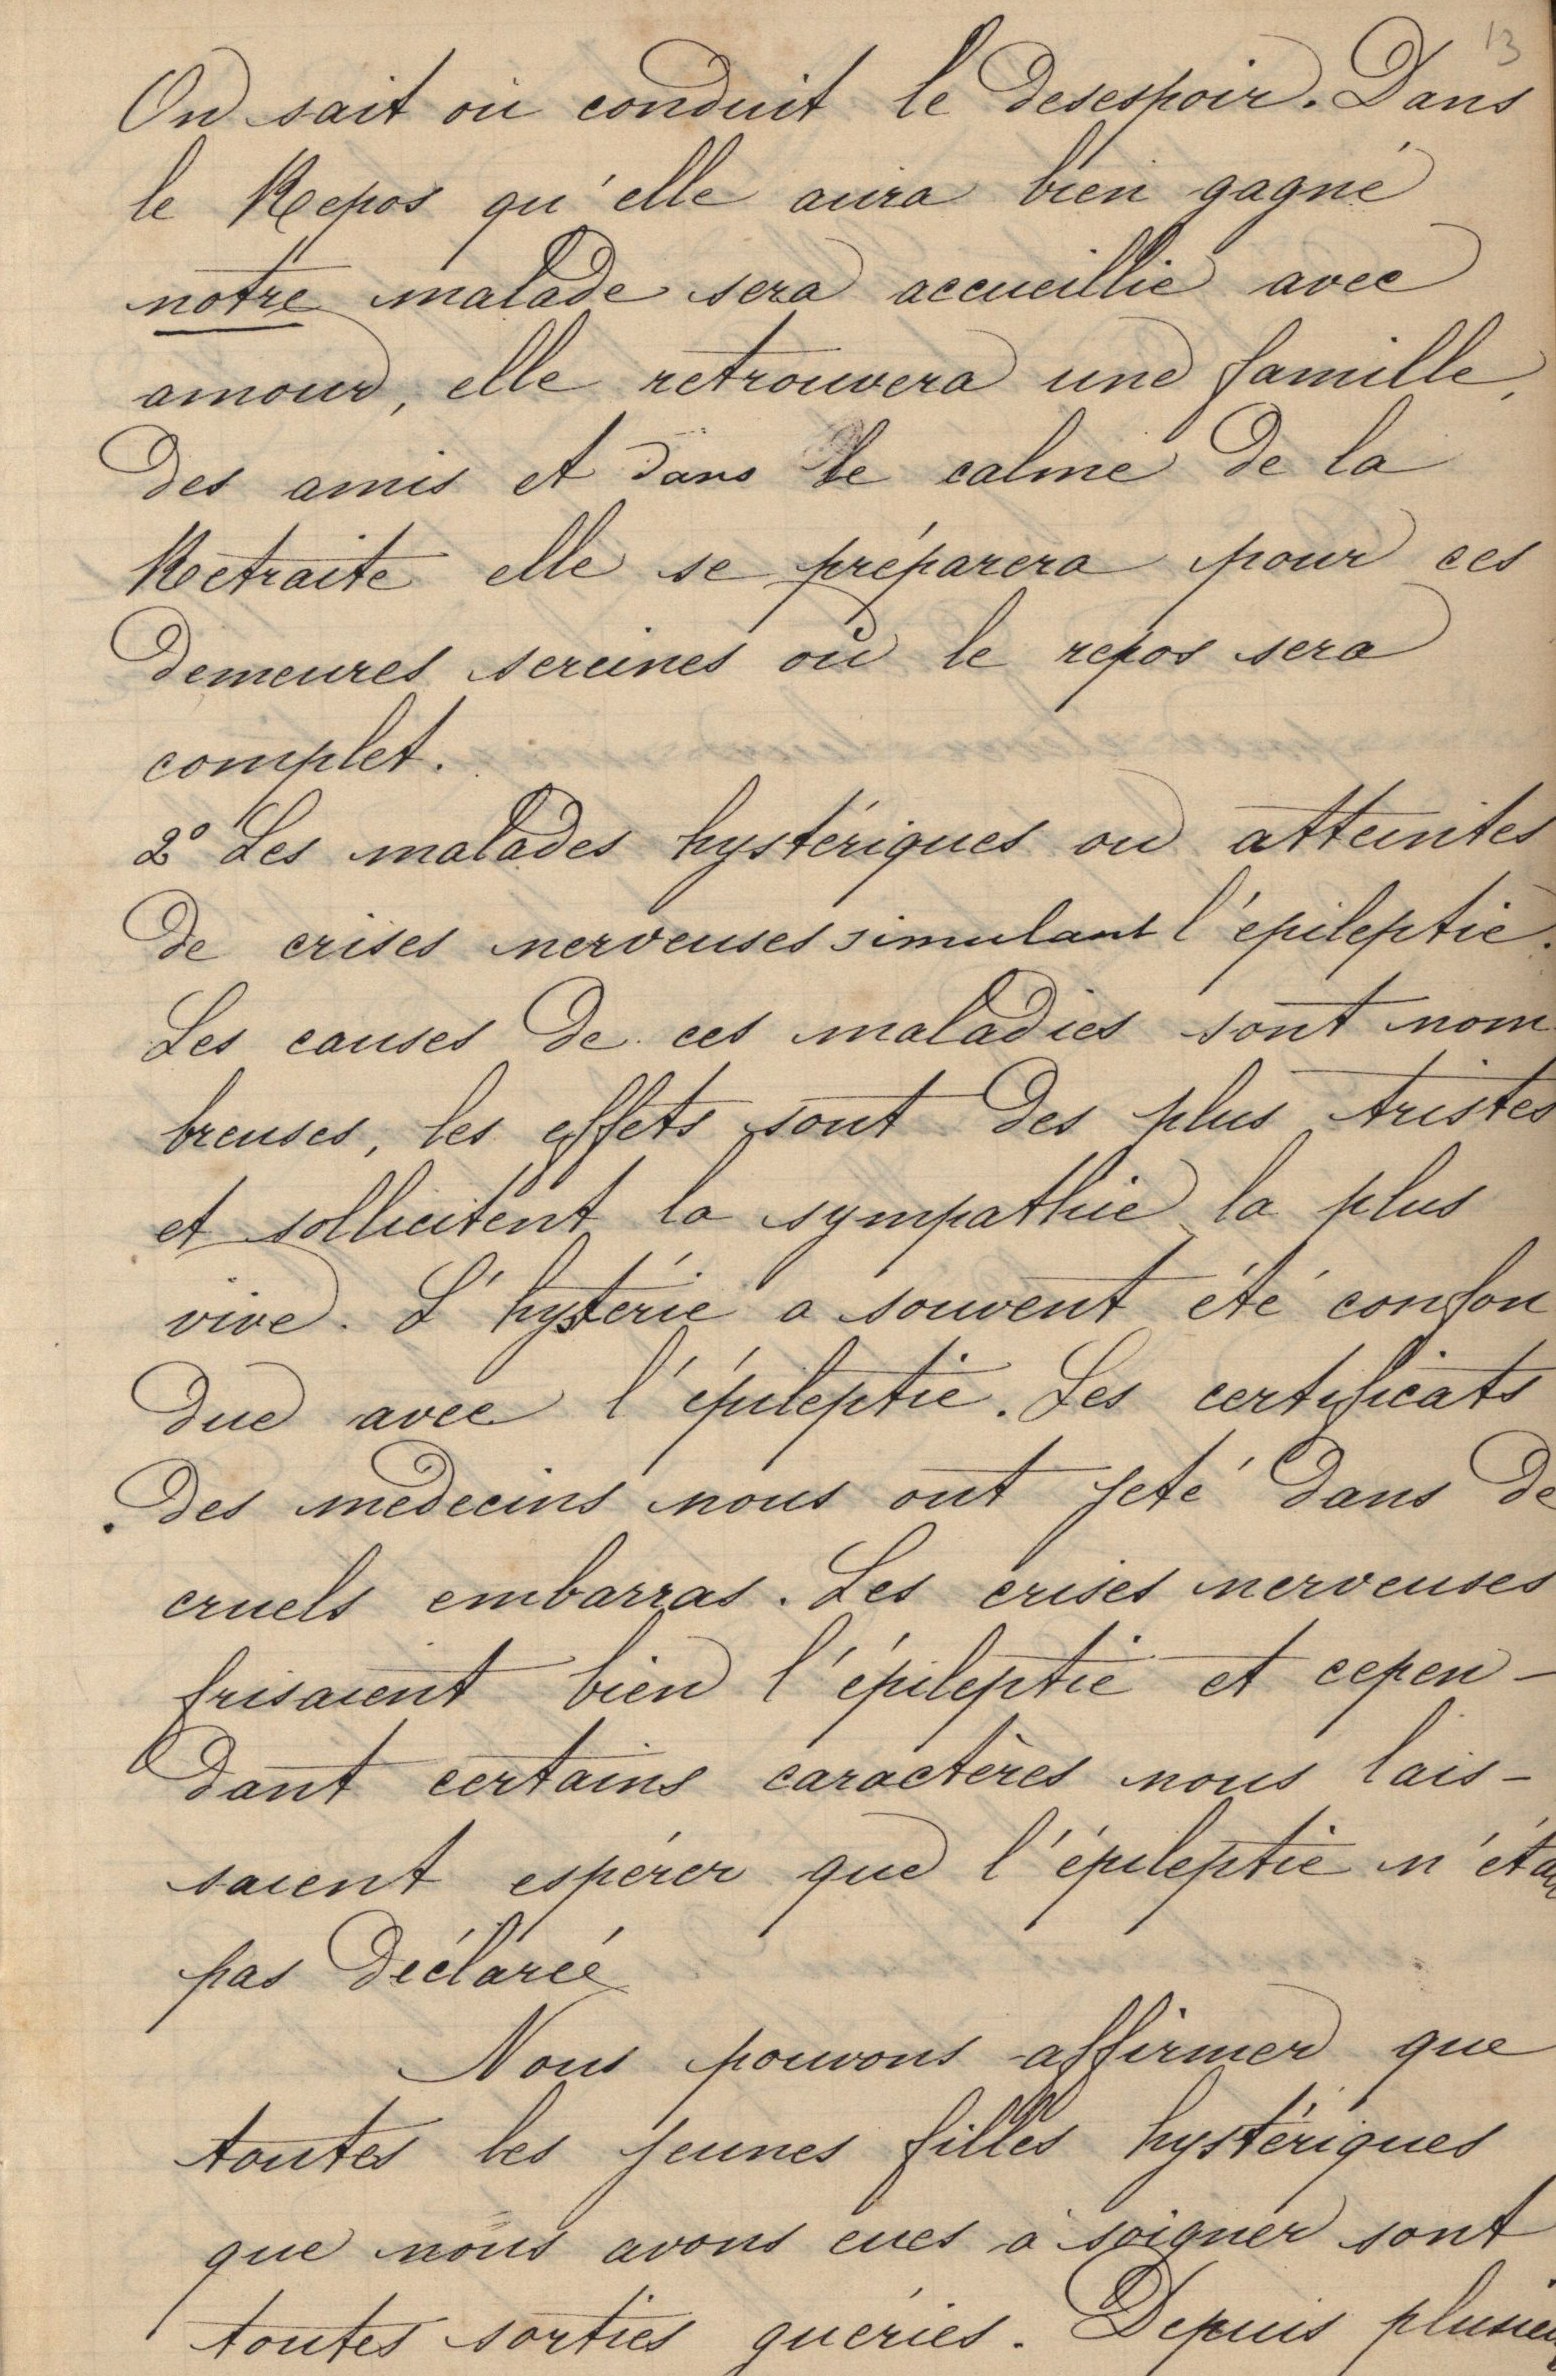 13
On sait où conduit le desespoir. Dans
le Repos qu'elle aura bien gagné
notre malade sera accueillie avec
amour, elle retrouvera une famille,
des amis et dans le calme de la
Retraite elle se préparera pour ces
demeures sereines où le repos sera
complet.
2° Les malades hystériques ou atteintes
de crises nerveuses simulant l'épileptie.
Les causes de ces maladies sont nom
breuses, les effets sont des plus tristes
et sollicitent la sympathie la plus
vive. L'hystérie a souvent été confon
due avec l'épileptie. Les certificats
des médecins nous ont jeté dans de
cruels embarras. Les crises nerveuses
frisaient bien l'épileptie et cepen-
dant certains caractères nous lais-
saient espérer que l'épileptie n'étai
pas déclarée
Nous pouvons affirmer que
toutes les jeunes filles hystériques
que nous avons eues à soigner sont
toutes sorties guéries. Depuis plusieu